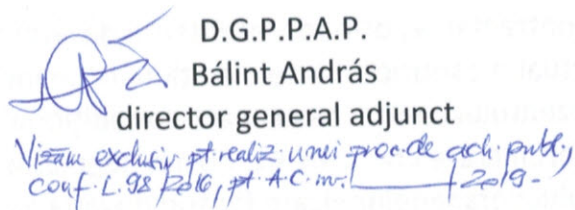 D.G.P.P.A.P.
Bálint András
director general adjunct
Vizăm exclusiv pt. realiz. unei proc. de ach. publ.,
conf. L. 98/2016, pt. A.C. nr. ______/2019.-